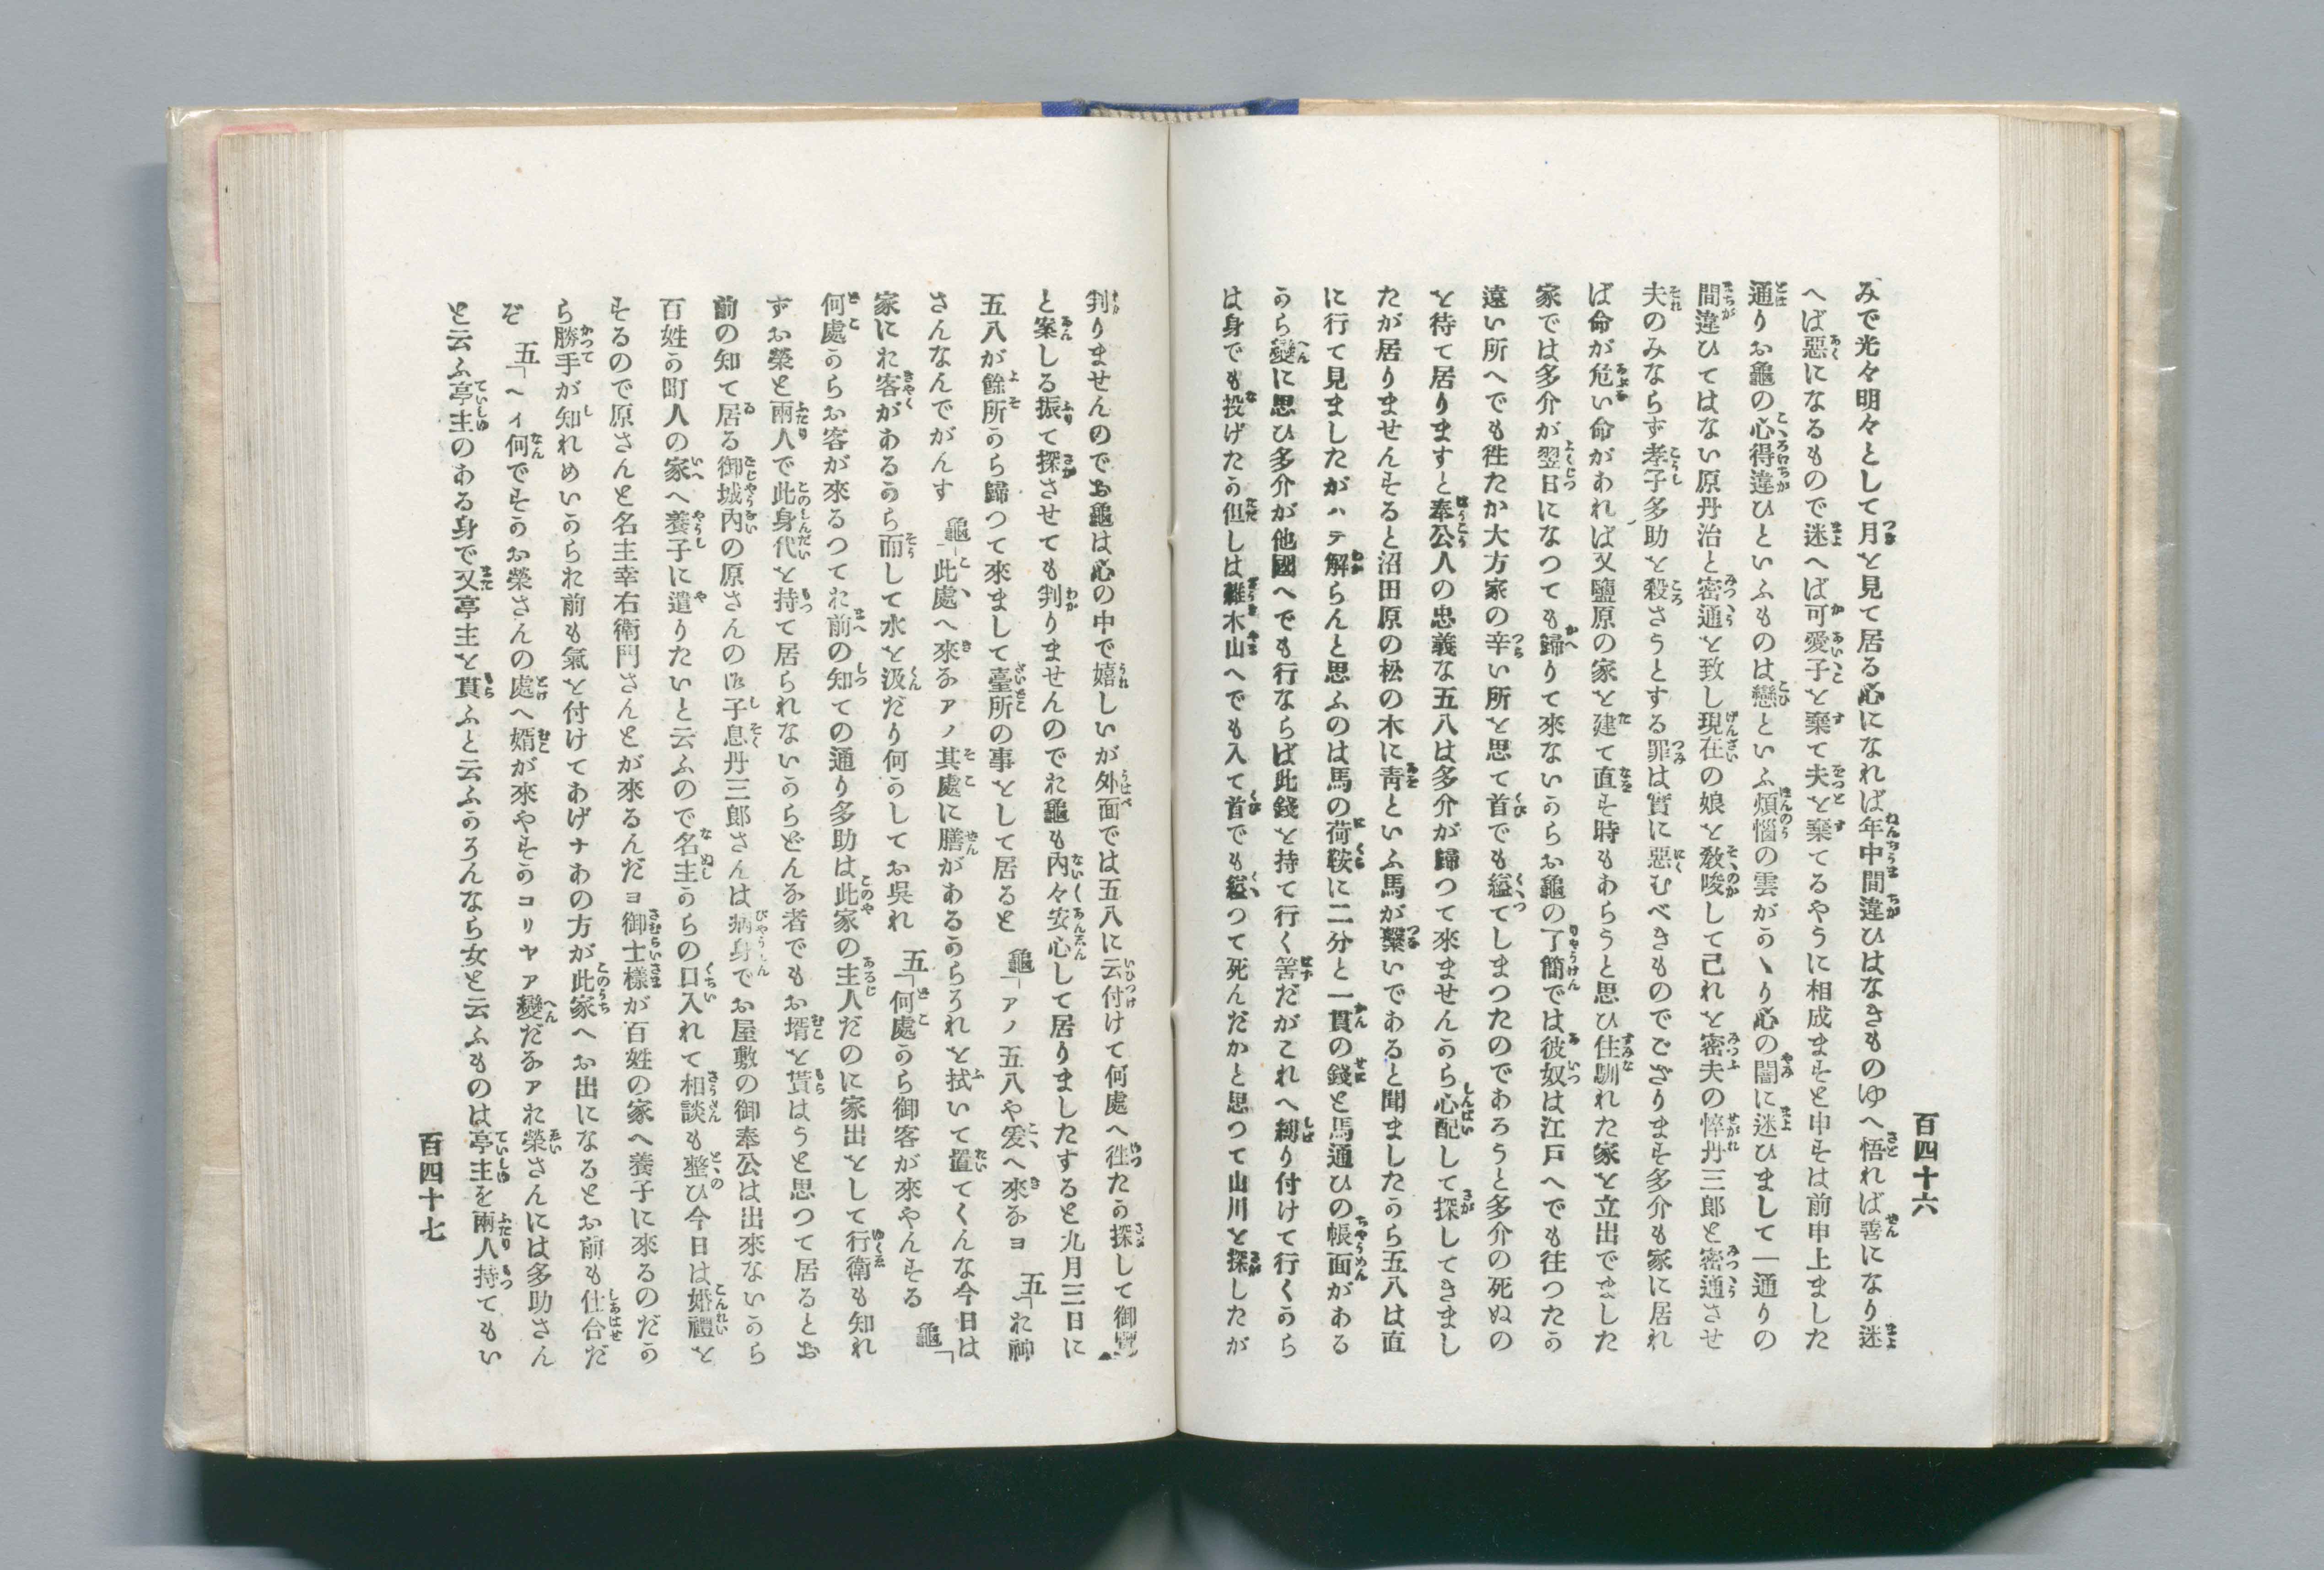 百四十六
みで光々明々として月を見て居る心になれば年中間違ひはなきものゆへ悟れば善になり迷
へば惡になるもので迷へば可愛子を棄て夫を棄てるやうに相成ますと申すは前申上ました
通りお龜の心得違ひといふものは戀といふ煩惱の雲がかゝり心の闇に迷ひまして一通りの
間違ひてはない原丹治と密通を致し現在の娘を敎唆して己れと密夫の悴丹三郎と密通させ
夫のみならず孝子多助を殺さうとする罪は實に惡むべきものでござります多介も家に居れ
ば命が危い命があれば又鹽原の家を建て直す時もあらうと思ひ住馴れた家を立出でました
家では多介が翌日になつても歸りて來ないからお龜の了簡では彼奴は江戸へでも往つたか
遠い所へでも徃たか大方家の辛い所を思て首でも縊てしまつたのであろうと多介の死ぬの
を待て居りますと奉公人の忠義な五八は多介が歸つて來ませんから心配して探してきまし
たが居りませんすると沼田原の松の木に靑といふ馬が繫いであると聞ましたから五八は直
に行て見ましたがハテ解らんと思ふのは馬の荷鞍に二分と一貫の錢と馬通ひの帳面がある
から變に思ひ多介が他國へでも行ならば此錢を持て行く筈だがこれへ縛り付けて行くから
は身でも投げたか但しは雜木山へでも入て首でも縊つて死んだかと思つて山川を探したが
判りませんのでお龜は心の中で嬉しいが外面では五八に云付けて何處へ徃たか探して御覽
と案しる振て探させても判りませんのでお龜も內々安心して居りましたすると九月三日に
五八が餘所から歸つて來まして臺所の事をして居ると　龜「アノ五八や爰へ來なヨ　五「お神
さんなんでがんす　龜「此處へ來なアノ其處に膳があるからあれを拭いて置てくんな今日は
家にお客があるから而して水を汲だり何かしてお吳れ　五「何處から御客が來やんする　龜「
何處からお客が來るつてお前の知ての通り多助は此家の主人だのに家出をして行衛も知れ
ずお榮と兩人で此身代を持て居られないからどんな者でもお壻を貰はうと思つて居るとお
前の知て居る御城內の原さんの御子息丹三郎さんは病身でお屋敷の御奉公は出來ないから
百姓か町人の家へ養子に遣りたいと云ふので名主からの口入れて相談も整ひ今日は婚禮を
するので原さんと名主幸右衛門さんとが來るんだヨ御士樣が百姓の家へ養子に來るのだか
ら勝手が知れめいからお前も氣を付けてあげナあの方が此家へお出になるとお前も仕合だ
ぞ　五「ヘイ何ですかお榮さんの處へ婿が來やすかコリヤア變だなアお榮さんには多助さん
と云ふ亭主のある身で又亭主を貰ふと云ふかろんなら女と云ふものは亭主を兩人持てもい
百四十七